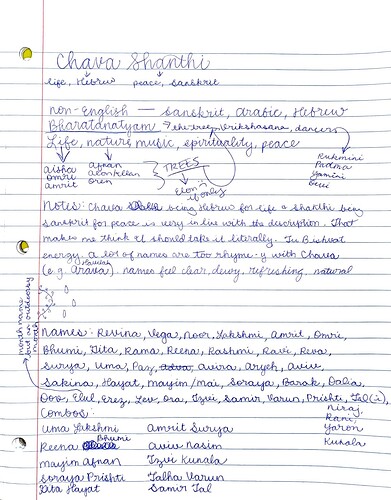 Chava Shanthi
life, Hebrew peace, sanskrit
non-English — Sanskrit, Arabic, Hebrew
Bharatanatyam → the tree, vrikshasana, dancers
Life, nature, music, spirituality, peace
aisha
omri
amrit
afnan
alon/elan
oren
TREES
Elon :: if only
Rukmini
Padma
Yamini
Notes: Chava being Hebrew for life & Shanthi being
sanskrit for peace is very in line with the description. That
makes me think I should take it literally. Tu Bishvat
energy. a lot of names are too rhyme-y with Chava
(e.g. Aravah). names feel clear, dewy, refreshing, natural
month name but in ordinary month
Names: Revina, Vega, Noor, Lakshmi, Amrit, Omri,
Bhumi, Gita, Rama, Reena, Rashmi, Ravi, Reva,
Surya, Uma, Paz, Avira, Aryeh, Aviv,
Sakina, Hayat, mayim/mai, Soraya, Barak, Orlia
Dov, Elul, Erez, Lev, Ora, Tzvi, Samir, Varun, Prishti, Tal(ia),
Niraj,
Rani,
Yaron
Kunala
Combos:
Uma Lakshmi
Amrit Surya
Reena Bhumi
Aviv Nasim
mayim Afnan
Tzvi Kunala
Soraya Prishti
Talha Varun
Gita Hayat
Samir Tal